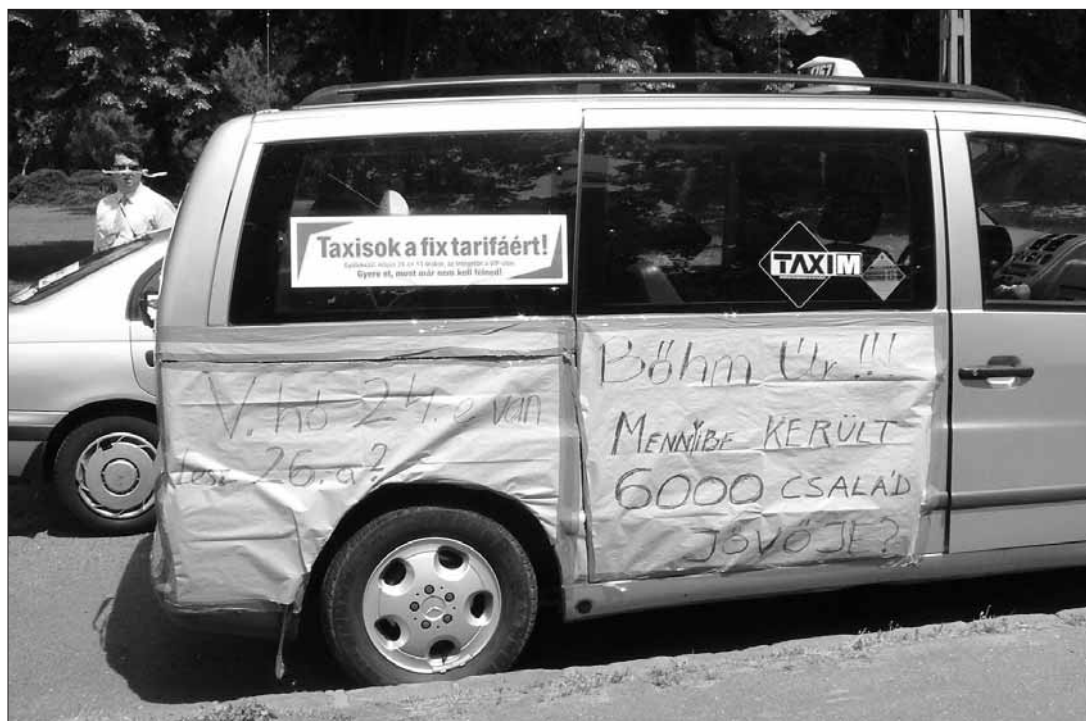 Taxisok a fix tarifáért!
Gyere el, mert már nem kell félned!
TAXIM
V. hó 24.e van
lesz 26.a?
Bőhm Úr!!!
MENNYIBE KERÜLT
6000 CSALÁD
JÖVŐJE?